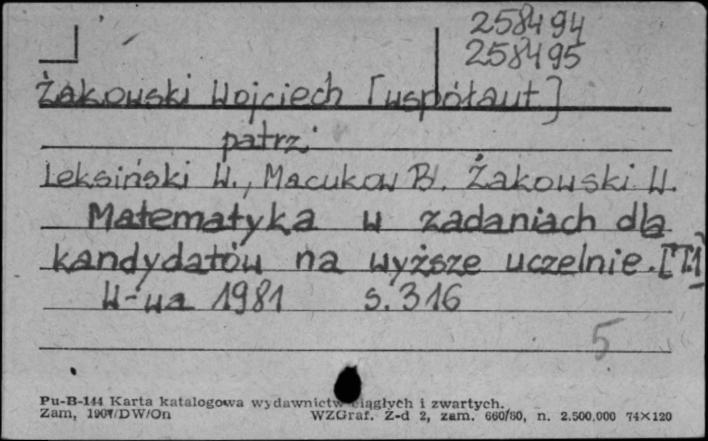 258494
258495
Żakowski Wojciech [współaut]
patrz:
Leksiński W., Macukow B. Żakowski W.
Matematyka w zadaniach dla
kandydatów na wyższe uczelnie. [T.1]
W-wa 1981 s. 316
5
Pu-B-144 Karta katalogowa wydawnictw ciągłych i zwartych.
Zam, /DW/On WZGraf. Z-d 2, zam. 660/60, n. 2.500.000 74×120